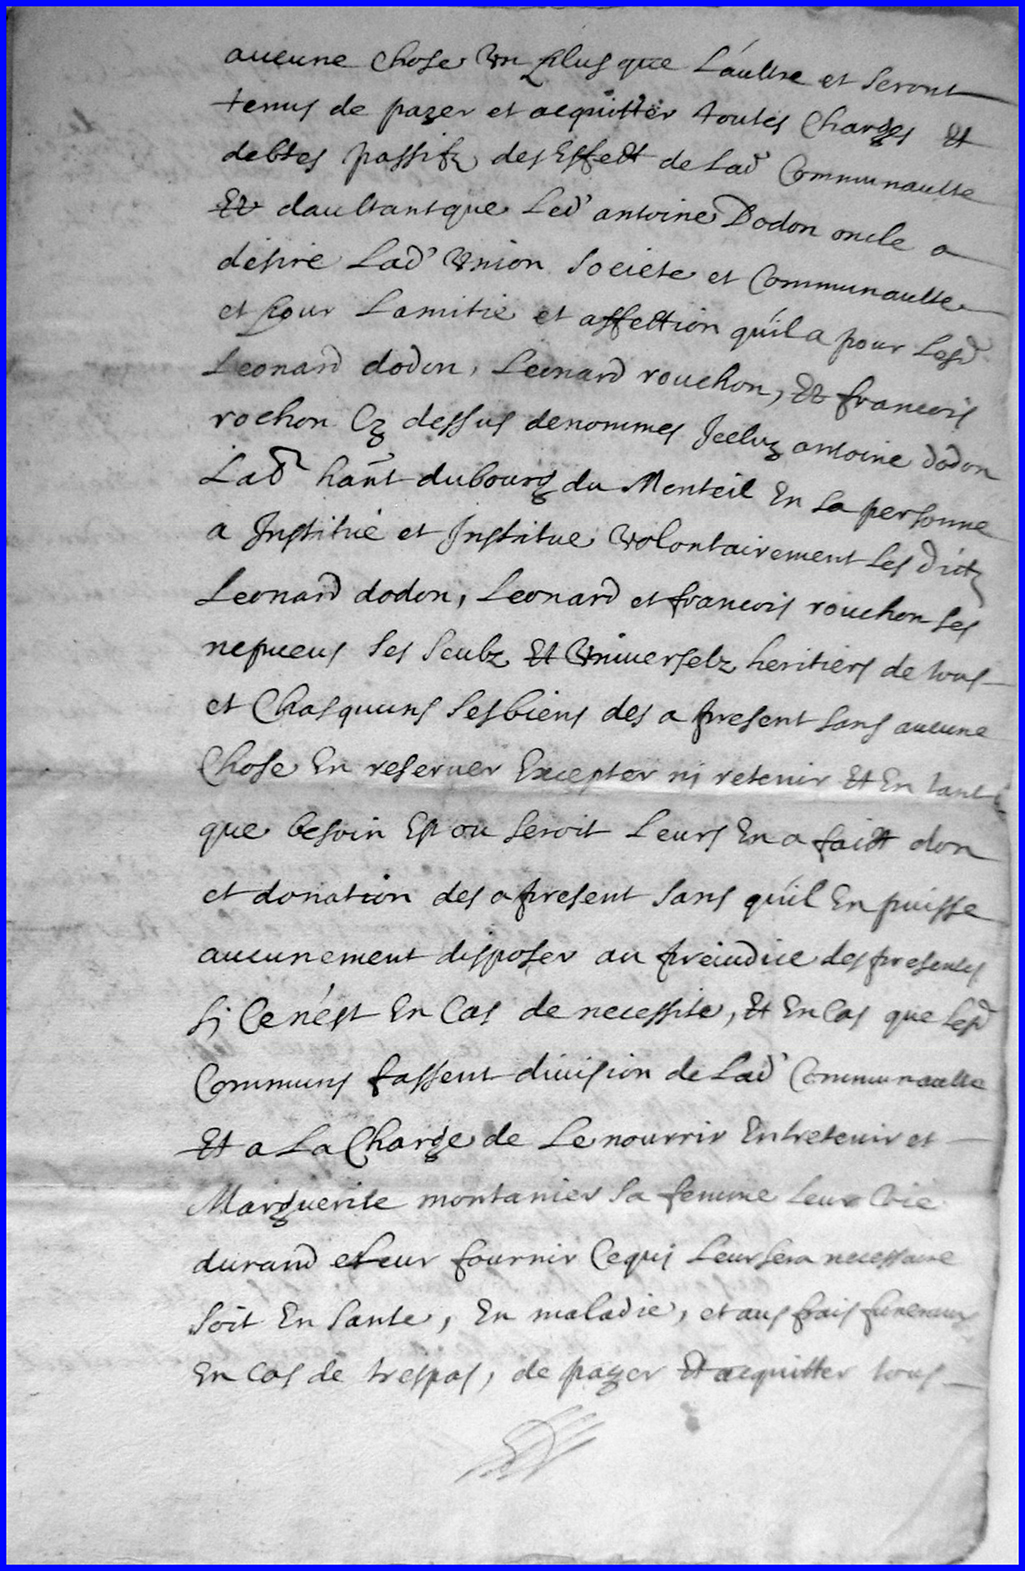 aucune chose un plus que l'aultre et seront
tenus de payer et acquitter toutes charges Et
debtes passifz des Effect de lad' Communaulte
Et daultant que led' antoine Dodon oncle a
desire lad' Union societe et Communaulte
et pour Lamitie et affection qu'il a pour lesd'
Leonard dodon, Leonard rouchon, Et francois
rochon Cy dessus denommes Jceluy antoine dodon
Lad' hant du bourg du Monteil En sa personne
a Institué et Institue volontairement les dictz
Leonard dodon, Leonard et francois rouchon ses
nepueus ses seulz Et Uniuerselz heritiers de tous
et Chasquuns ses biens des a present sans aucune
Chose En reseruer Excepter ny retenir Et En tant
que besoin Est ou seroit Leurs En a faict don
et donation des a present sans qu'il En puisse
aucunement disposer au preiudice des presentes
sy Ce n'est En Cas de necessite, Et En Cas que lesd'
Communs fassent diuision de Lad' Communaulte
Et a La Charge de Le nourrir Entretenir et
Marguerite montanier sa femme leur Vie
durand et leur fournir Ce quy leur sera necessaire
soit En sante, En maladie, et aus frais funeraux
En Cas de trespas, de payer Et acquitter tous